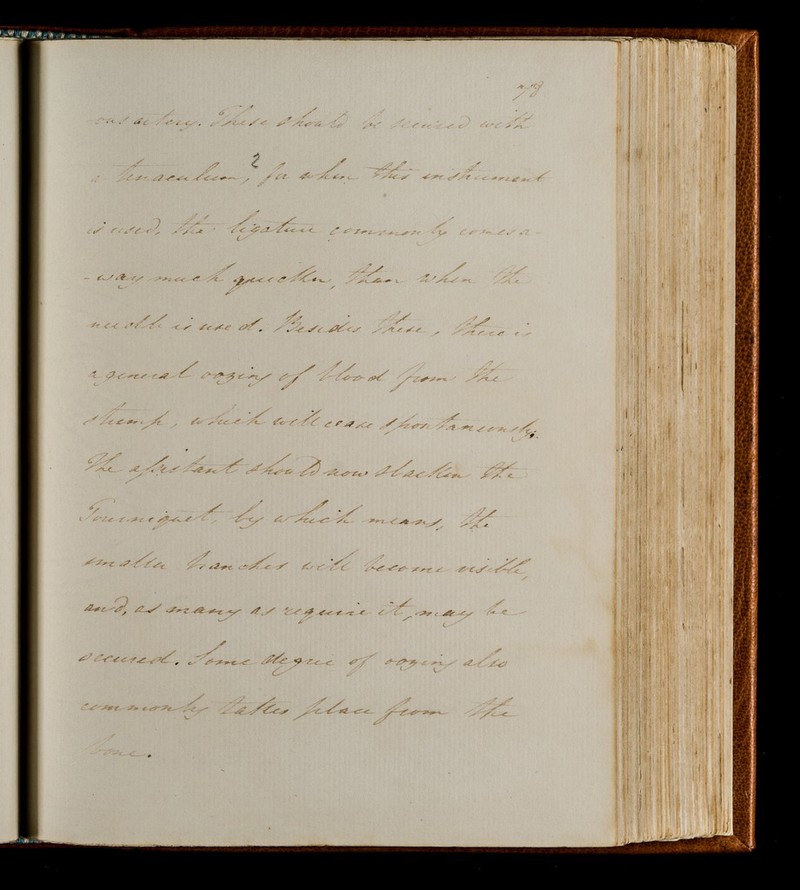 78
ous artery. These should be secured with
a tenaculum,2 for when this instrument
is used, the ligature commonly comes a-
-way much quicker, than when the
needle is used. Besides these, there is
a general oozing of blood from the
stump, which will cease spontaneously.
The assistant should now slacken the
Tourniquet, by which means, the
smaller branches will become visible,
and, as many as require it, may be
secured. Some degree of oozing also
commonly takes place from the
bone.